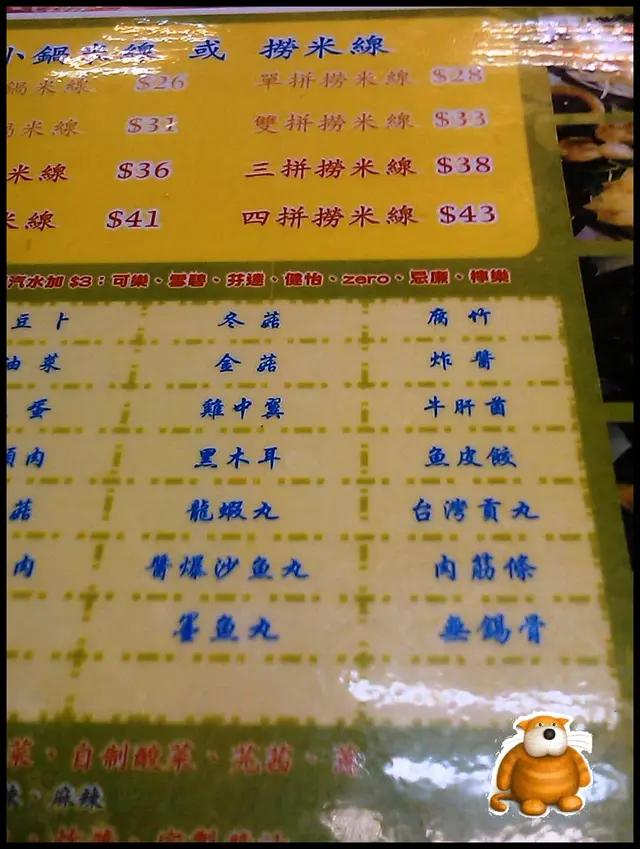 小鍋米線 或 撈米線
鍋米線 $26 單拼撈米線 $28
米線 $31 雙拼撈米線 $33
米線 $36 三拼撈米線 $38
米線 $41 四拼撈米線 $43
汽水加 $3：可樂、雪碧、芬達、健怡、zero、忌廉、檸樂
豆卜 冬菇 腐竹
油菜 金菇 炸醬
蛋 雞中翼 牛肝菌
肉 黑木耳 魚皮餃
菇 龍蝦丸 台灣貢丸
肉 醬爆沙魚丸 肉筋條
墨魚丸 無錫骨
菜、自制酸菜、芫茜、
辣、麻辣
炸醬、